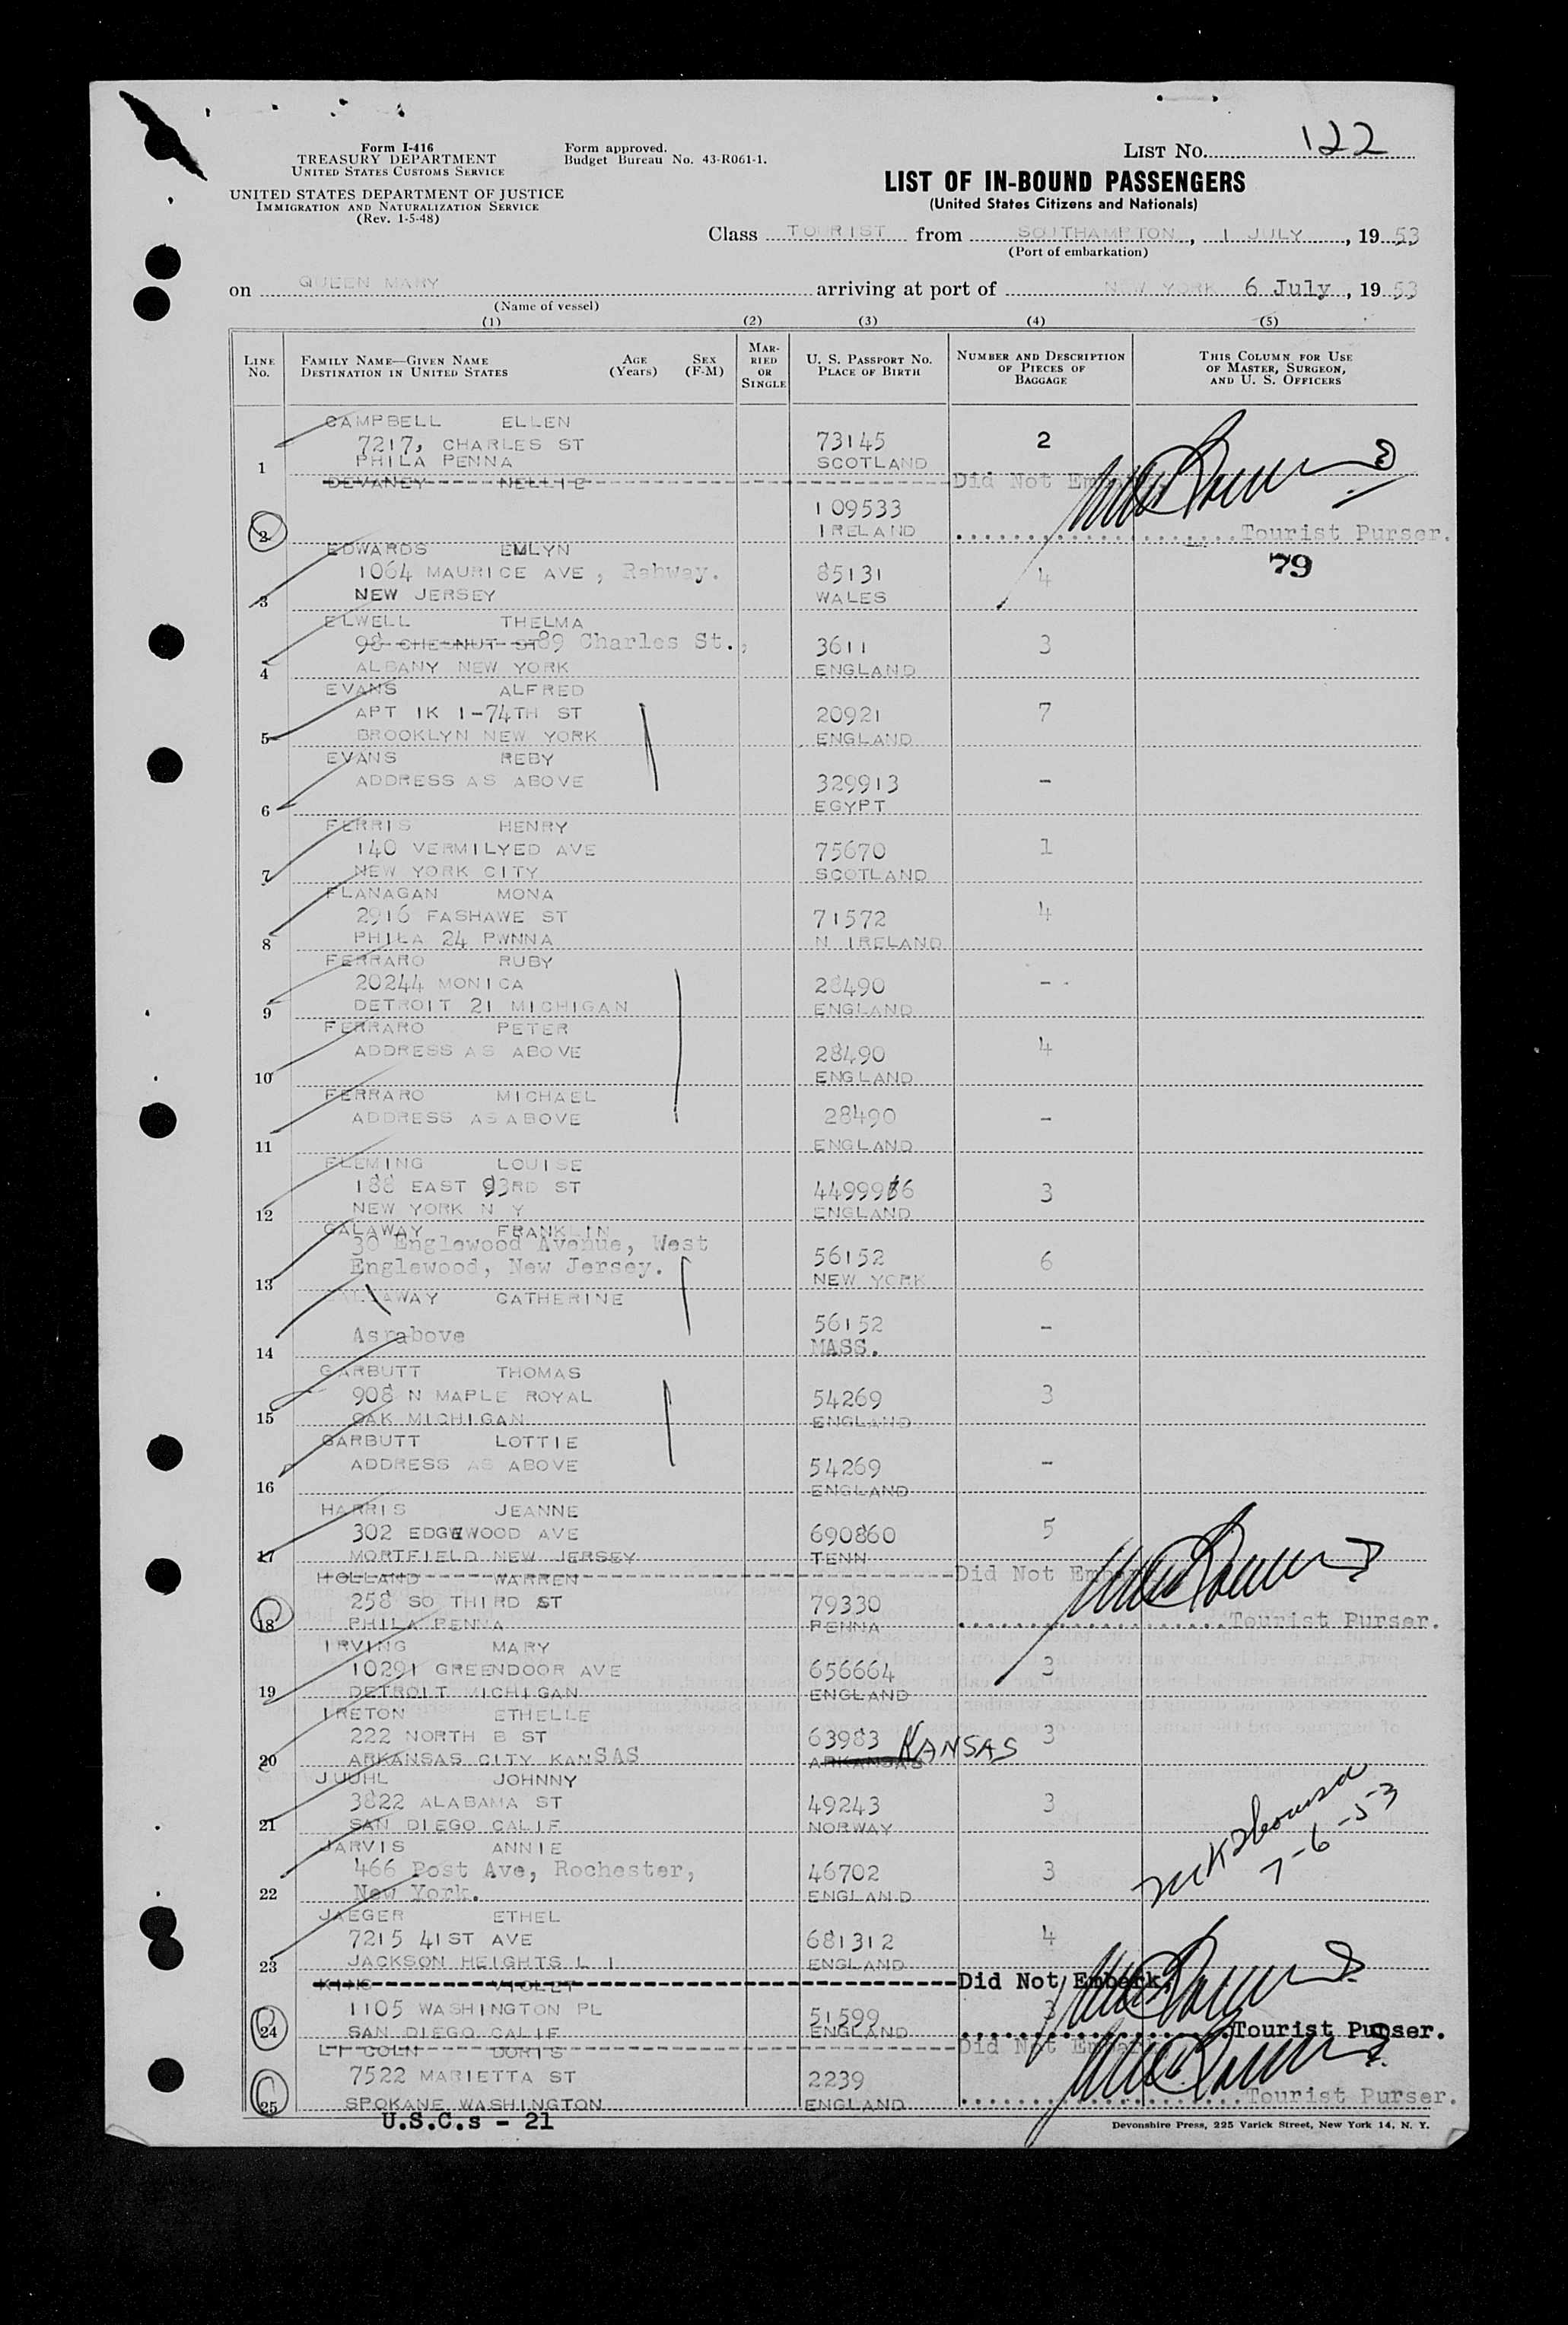 Form I-416
TREASURY DEPARTMENT
UNITED STATES CUSTOMS SERVICE
UNITED STATES DEPARTMENT OF JUSTICE
IMMIGRATION AND NATURALIZATION SERVICE
(Rev. 1-5-48)
Form approved.
Budget Bureau No. 43-R061-1.
LIST NO. 122
LIST OF IN-BOUND PASSENGERS
(United States Citizens and Nationals)
Class TOURIST from SOUTHAMPTON, 1 JULY, 1953
(Port of embarkation)
on QUEEN MARY arriving at port of NEW YORK 6 July, 1953
(Name of vessel)
(1) (2) (3) (4) (5)
LINE NO.
FAMILY NAME—GIVEN NAME
DESTINATION IN UNITED STATES
AGE (Years)
SEX (F-M)
MARRIED OR SINGLE
U. S. PASSPORT NO.
PLACE OF BIRTH
NUMBER AND DESCRIPTION OF PIECES OF BAGGAGE
THIS COLUMN FOR USE OF MASTER, SURGEON, AND U. S. OFFICERS
CAMPBELL ELLEN
7217, CHARLES ST 73145 2
1 PHILA PENNA SCOTLAND
DEVANEY NELLIE Did Not Embark
109533
2 IRELAND Tourist Purser.
79
EDWARDS EMLYN
1064 MAURICE AVE, Rahway. 85131 4
3 NEW JERSEY WALES
ELWELL THELMA
98 CHESNUT ST 89 Charles St., 3611 3
4 ALBANY NEW YORK ENGLAND
EVANS ALFRED
APT 1K 1-74TH ST 20921 7
5 BROOKLYN NEW YORK ENGLAND
EVANS REBY
ADDRESS AS ABOVE 329913 -
6 EGYPT
FERRIS HENRY
140 VERMILYED AVE 75670 1
7 NEW YORK CITY SCOTLAND
FLANAGAN MONA
2916 FASHAWE ST 71572 4
8 PHILA 24 PWNNA N IRELAND
FERRARO RUBY
20244 MONICA 28490 -
9 DETROIT 21 MICHIGAN ENGLAND
FERRARO PETER
ADDRESS AS ABOVE 28490 4
10 ENGLAND
FERRARO MICHAEL
ADDRESS AS ABOVE 28490 -
11 ENGLAND
FLEMING LOUISE
188 EAST 93RD ST 3
12 NEW YORK N Y ENGLAND
GALAWAY FRANKLIN
30 Englewood Avenue, West 56152 6
13 Englewood, New Jersey. NEW YORK
CATHERINE
56152 -
14 As above MASS.
GARBUTT THOMAS
908 N MAPLE ROYAL 54269 3
15 OAK MICHIGAN ENGLAND
GARBUTT LOTTIE
ADDRESS AS ABOVE 54269 -
16 ENGLAND
HARRIS JEANNE
302 EDGEWOOD AVE 690860 5
17 MORTFIELD NEW JERSEY TENN
HOLLAND WARREN Did Not Embark
258 SO THIRD ST 79330
18 PHILA PENNA PENNA Tourist Purser.
IRVING MARY
10291 GREENDOOR AVE 656664 3
19 DETROIT MICHIGAN ENGLAND
IRETON ETHELLE
222 NORTH B ST 63983 KANSAS 3
20 ARKANSAS CITY KANSAS ARKANSAS
JUUHL JOHNNY
3822 ALABAMA ST 49243 3
21 SAN DIEGO CALIF NORWAY
JARVIS ANNIE
466 Post Ave, Rochester, 46702 3
22 New York. ENGLAND
7-6-53
JAEGER ETHEL
7215 41ST AVE 681312 4
23 JACKSON HEIGHTS L I ENGLAND
KING VIOLET Did Not Embark.
1105 WASHINGTON PL 51599 3
24 SAN DIEGO CALIF ENGLAND Tourist Purser.
LI COLN DORIS Did Not Embark
7522 MARIETTA ST 2239
25 SPOKANE WASHINGTON ENGLAND Tourist Purser.
U.S.C.s - 21
Devonshire Press, 225 Varick Street, New York 14, N. Y.